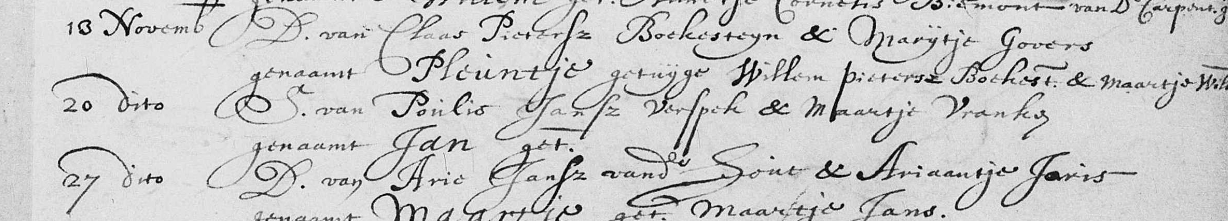 genaamt Willem get. Cornelis Biemont van D Carpent.
13 Novemb D. van Claas Pietersz Boekesteyn & Marijtje Govers
genaamt Pleuntje getuyge Willem pietersz Boekest. & Maartje
20 dito S. van Poulis Jansz Verspek & Maartje Vranks
genaamt Jan get.
27 dito D. van Arie Jansz vande Hout & Ariaantje Joris
genaamt Maartje get. Maartje Jans.